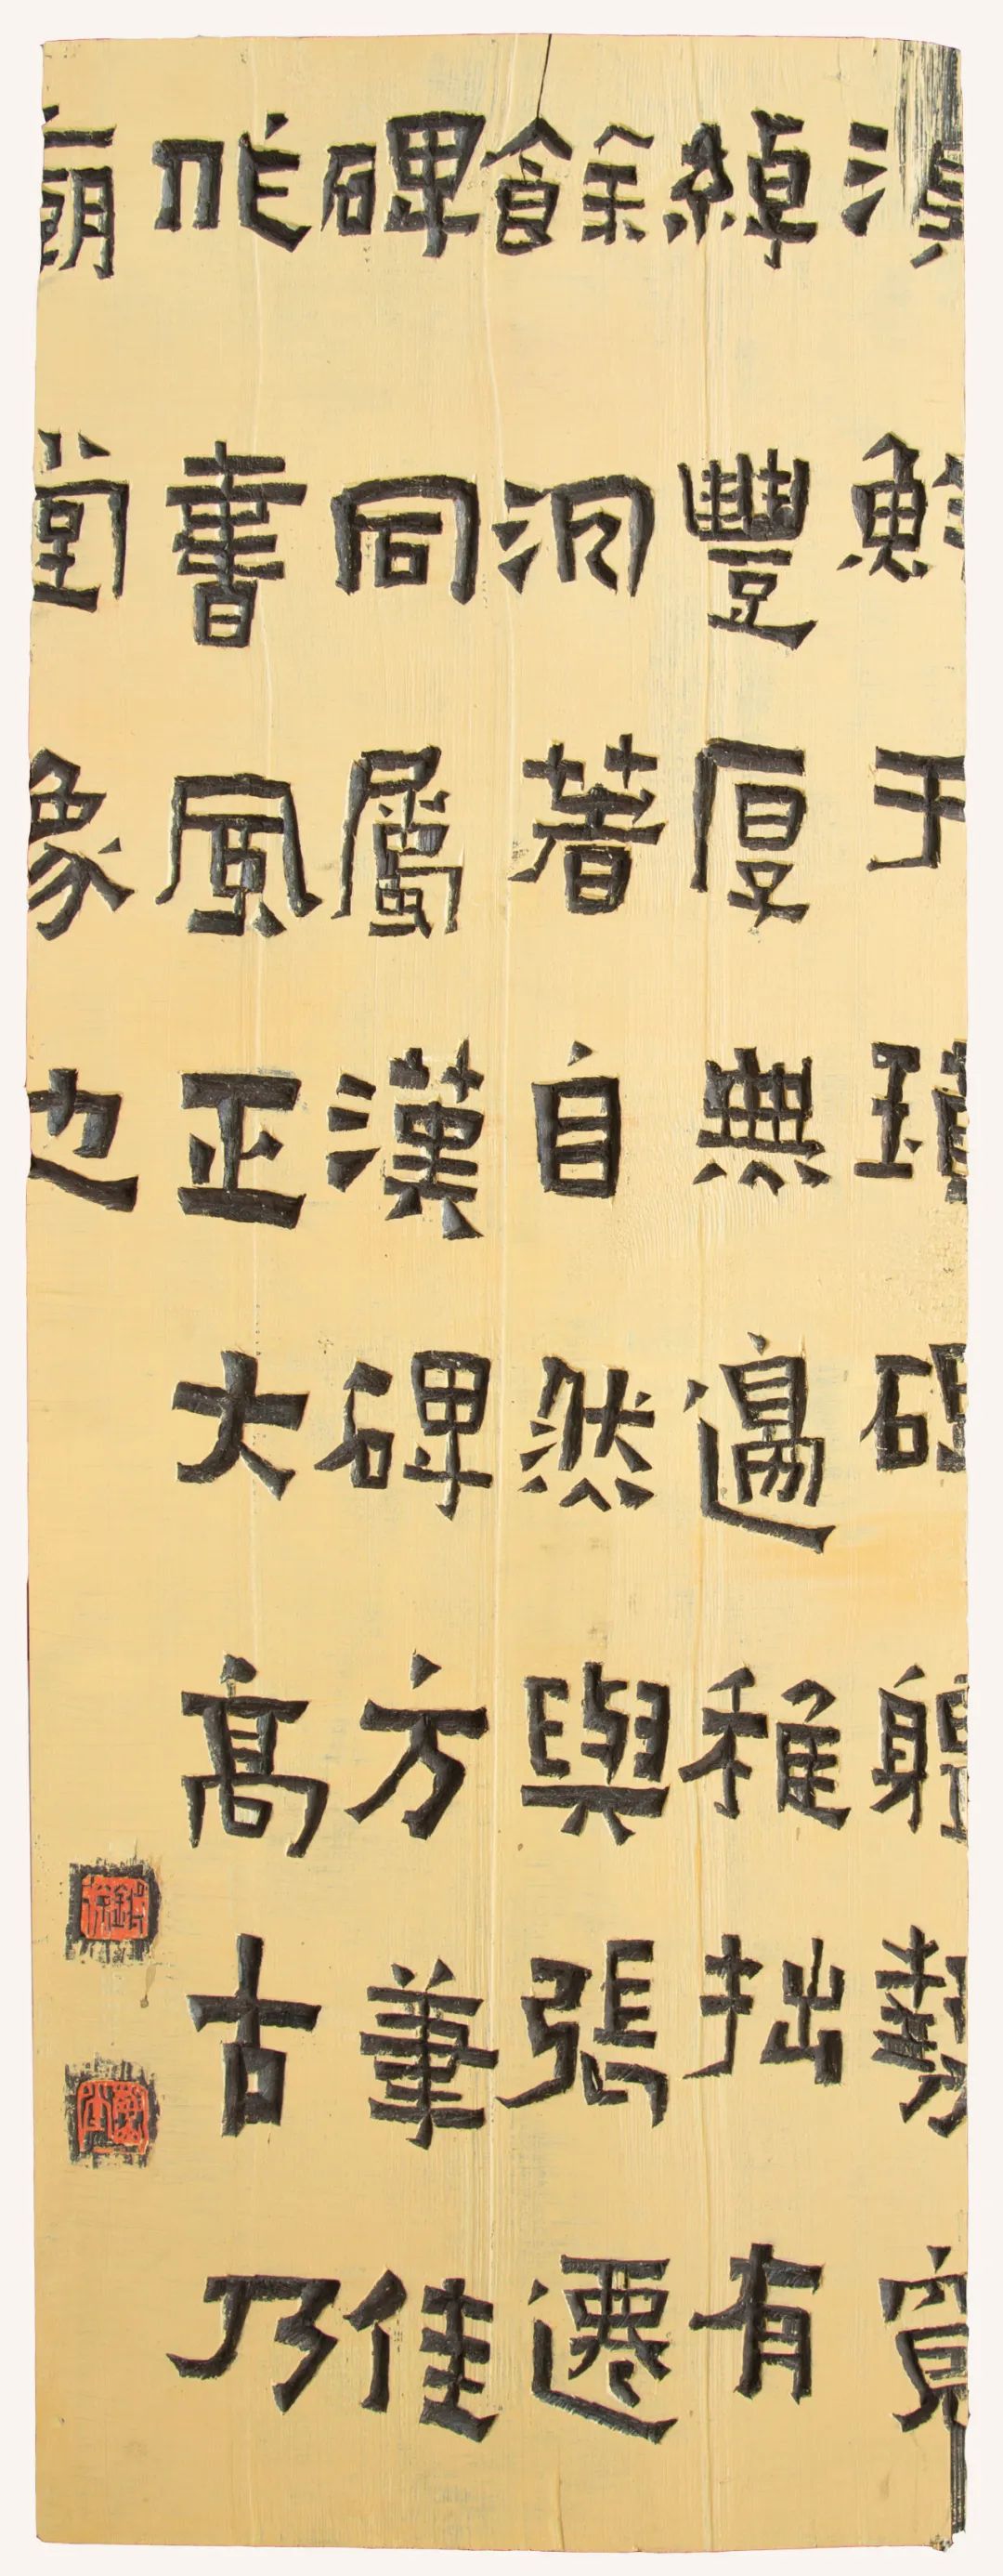 漢鮮于璜碑軆勢寬
綽豐厚無邊稚拙有
餘沉著自然與張遷
碑同屬漢碑方筆佳
作書風正大高古乃
廟堂象也